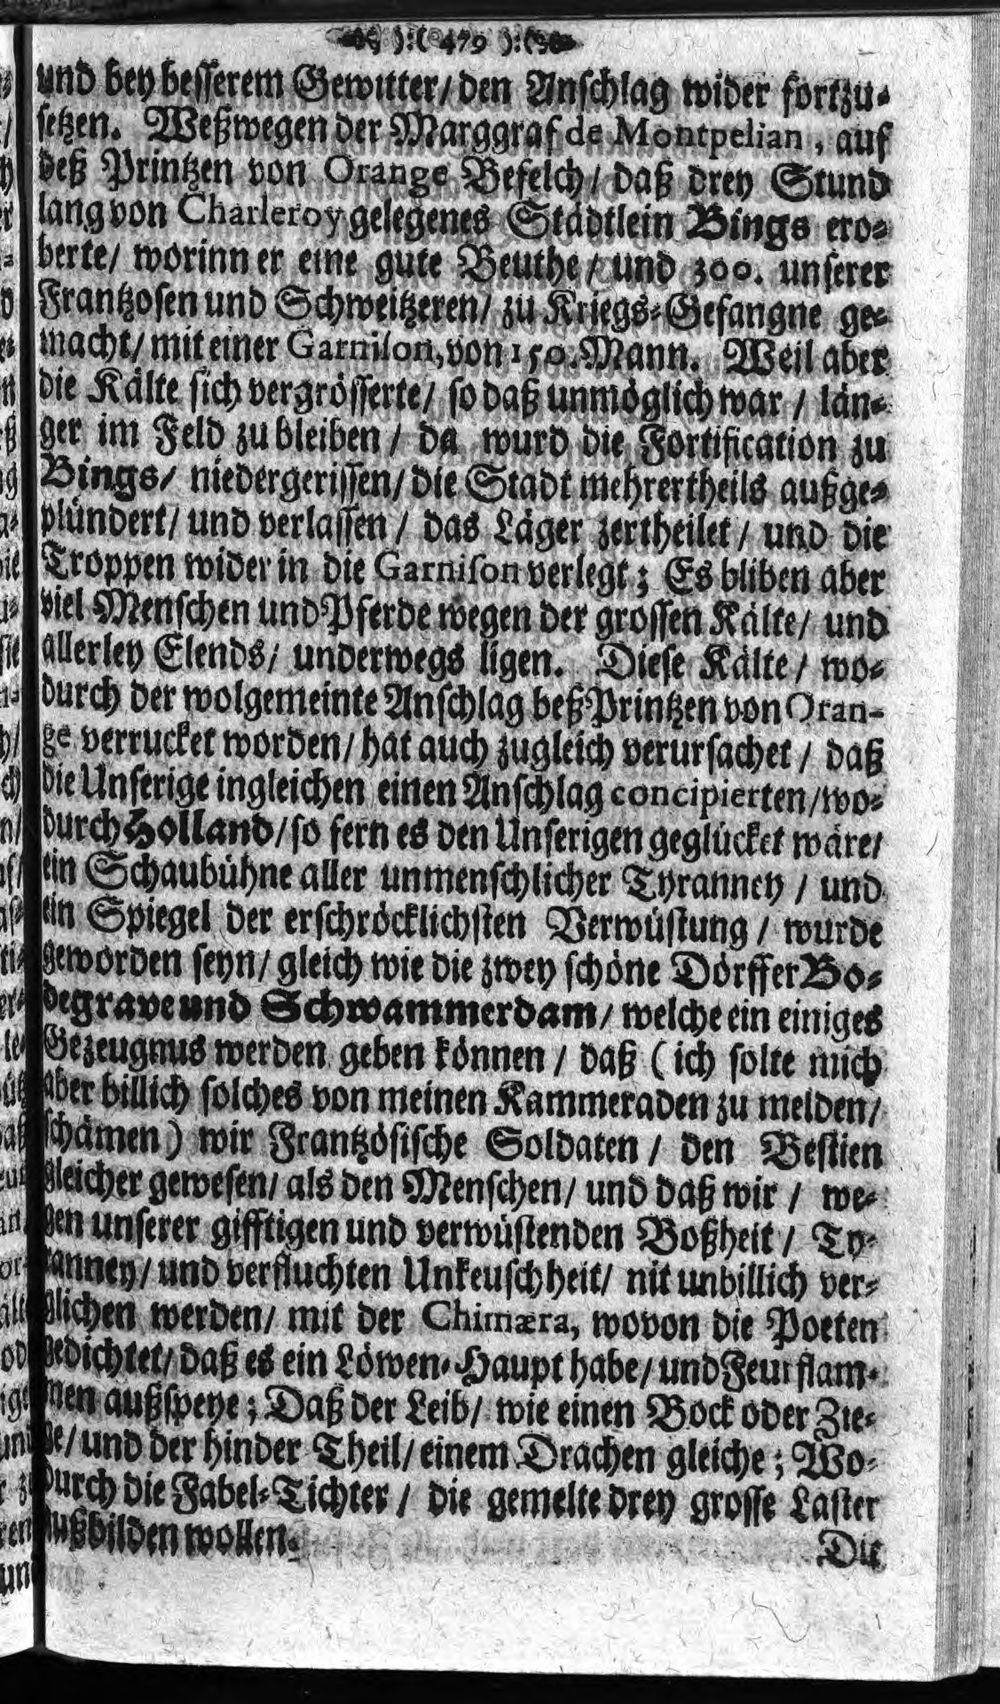 ):( 479 ):(
und bey besserem Gewitter/ den Anschlag wider fortzu-
setzen. Weßwegen der Marggraf de Montpelian, auf
deß Printzen von Orange Befelch/ daß drey Stund
lang von Charleroy gelegenes Städtlein Bings ero-
berte/ worinn er eine gute Beuthe/ und 300. unserer
Frantzosen und Schweitzeren/ zu Kriegs-Gefangne ge-
macht/ mit einer Garnison, von 150. Mann. Weil aber
die Kälte sich vergrösserte/ so daß unmöglich war / län-
ger im Feld zu bleiben / da wurd die Fortification zu
Bings/ niedergerissen/ die Stadt mehrertheils außge-
plündert/ und verlassen / das Läger zertheilet / und die
Troppen wider in die Garnison verlegt; Es bliben aber
viel Menschen und Pferde wegen der grossen Kälte/ und
allerley Elends/ underwegs ligen. Diese Kälte / wo-
durch der wolgemeinte Anschlag deß Printzen von Oran-
ge verrucket worden/ hat auch zugleich verursachet / daß
die Unserige ingleichen einen Anschlag concipierten/ wo-
durch Holland/ so fern es den Unserigen geglücket wäre/
ein Schaubühne aller unmenschlicher Tyranney / und
ein Spiegel der erschröcklichsten Verwüstung / wurde
geworden seyn/ gleich wie die zwey schöne Dörffer Bo-
degrave und Schwammerdam/ welche ein einiges
Gezeugnus werden geben können / daß (ich solte mich
aber billich solches von meinen Kammeraden zu melden/
schämen) wir Frantzösische Soldaten / den Bestien
gleicher gewesen/ als den Menschen/ und daß wir / we-
gen unserer gifftigen und verwüstenden Boßheit / Ty-
ranney/ und verfluchten Unkeuschheit/ nit unbillich ver-
glichen werden/ mit der Chimæra, wovon die Poeten
gedichtet/ daß es ein Löwen-Haupt habe/ und Feurflam-
men außspeye; Daß der Leib/ wie einen Bock oder Zie-
ge/ und der hinder Theil/ einem Drachen gleiche; Wo-
durch die Fabel-Tichter / die gemelte drey grosse Laster
außbilden wollen.
Die